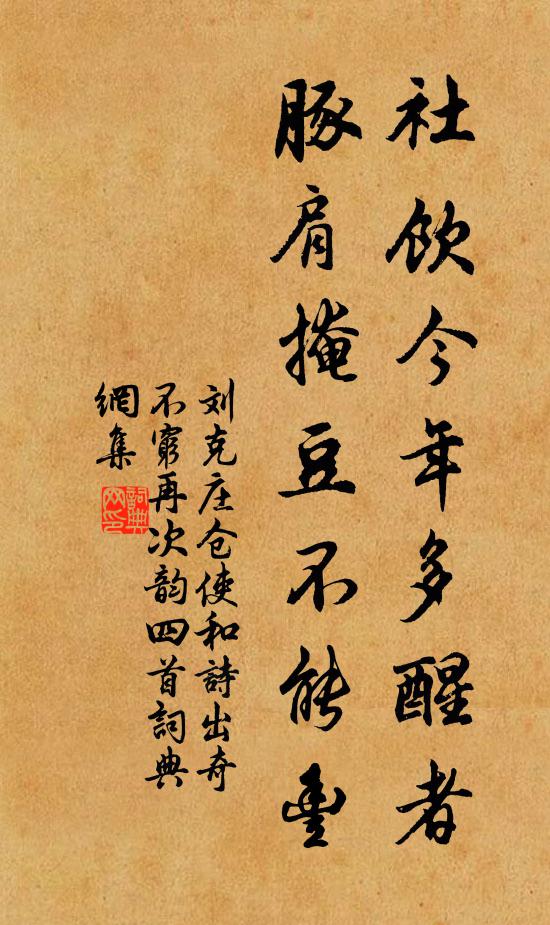 社飲今年多醒者
豚肩掩豆不能豐
刘克庄仓使和詩出奇
不窮再次韵四首詞典
網集
詞典
网印